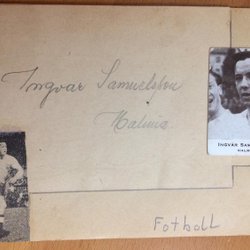 Ingvar Samuelsson
Malmö
INGVAR SA
MALM
Fotboll